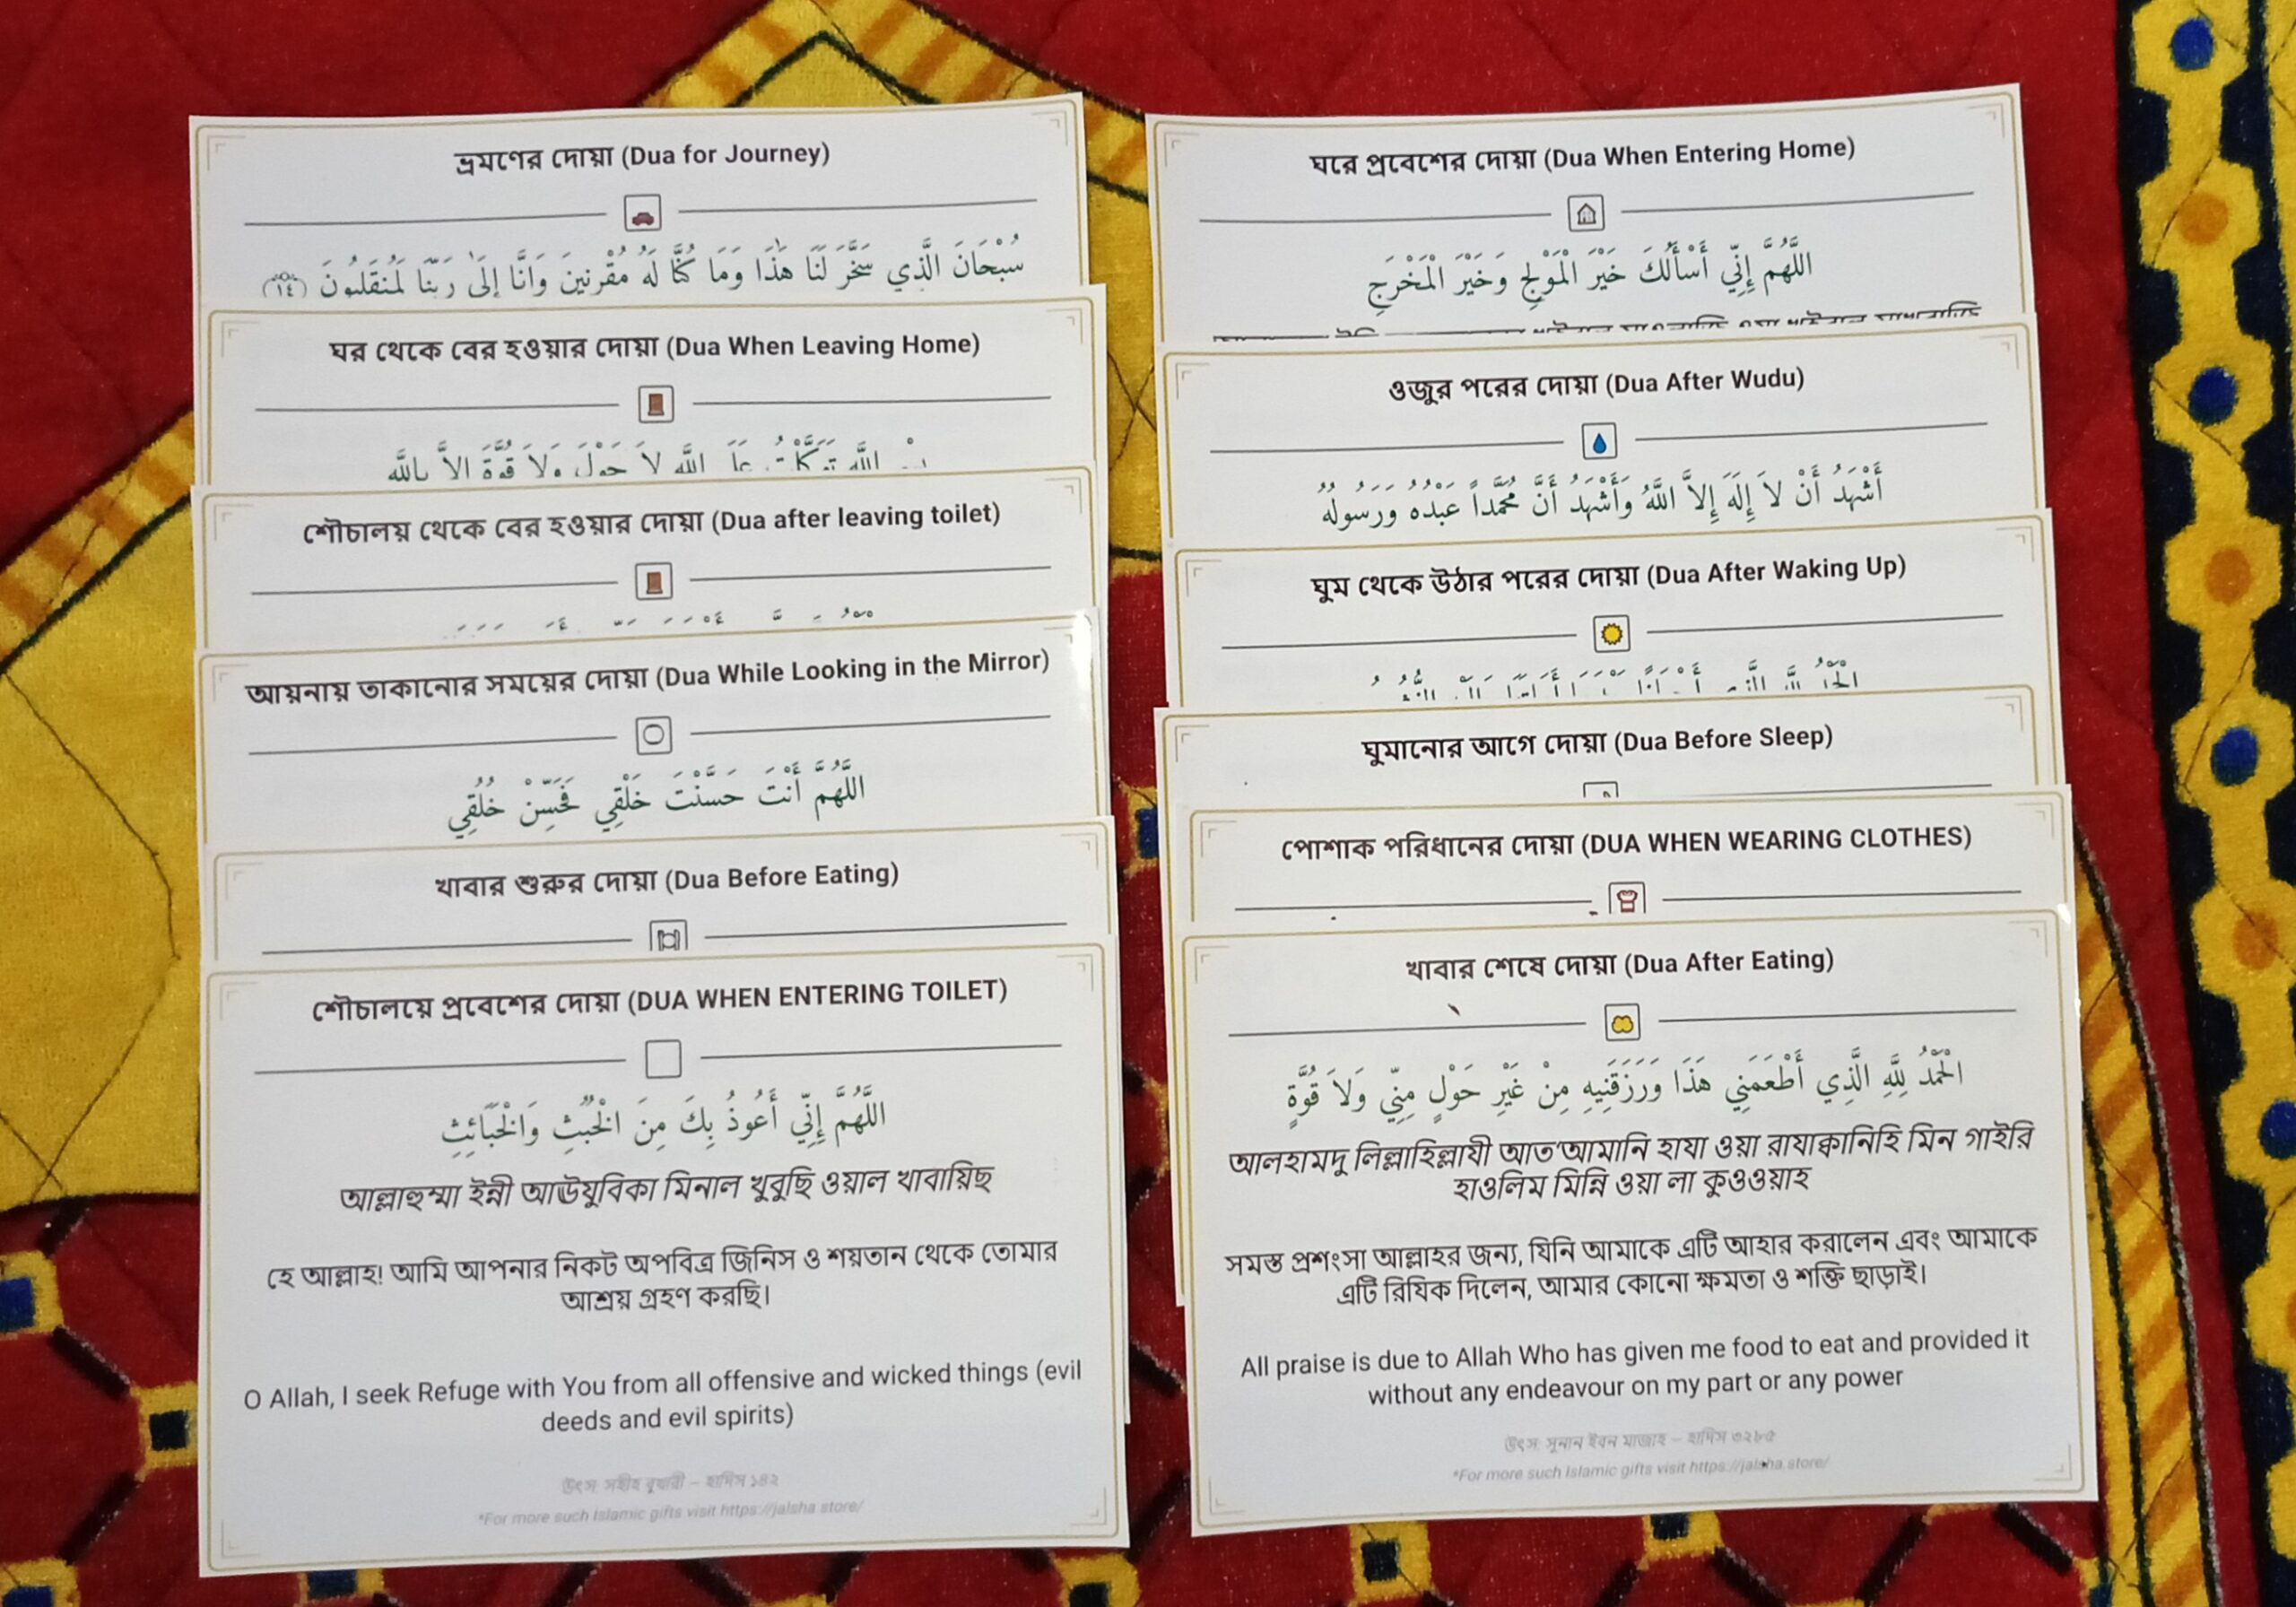 ভ্রমণের দোয়া (Dua for Journey)
سُبْحَانَ الَّذِي سَخَّرَ لَنَا هَٰذَا وَمَا كُنَّا لَهُ مُقْرِنِينَ وَإِنَّا إِلَىٰ رَبِّنَا لَمُنقَلِبُونَ (١٤)
ঘর থেকে বের হওয়ার দোয়া (Dua When Leaving Home)
اللَّهِ لاَ حَوْلَ وَلاَ قُوَّةَ إِلاَّ بِاللَّهِ
শৌচালয় থেকে বের হওয়ার দোয়া (Dua after leaving toilet)
আয়নায় তাকানোর সময়ের দোয়া (Dua While Looking in the Mirror)
اللَّهُمَّ أَنْتَ حَسَّنْتَ خَلْقِي فَحَسِّنْ خُلُقِي
খাবার শুরুর দোয়া (Dua Before Eating)
শৌচালয়ে প্রবেশের দোয়া (DUA WHEN ENTERING TOILET)
اللَّهُمَّ إِنِّي أَعُوذُ بِكَ مِنَ الْخُبُثِ وَالْخَبَائِثِ
আল্লাহুম্মা ইন্নী আঊযুবিকা মিনাল খুবুছি ওয়াল খাবায়িছ
হে আল্লাহ! আমি আপনার নিকট অপবিত্র জিনিস ও শয়তান থেকে তোমার
আশ্রয় গ্রহণ করছি।
O Allah, I seek Refuge with You from all offensive and wicked things (evil
deeds and evil spirits)
উৎস: সহীহ বুখারী – হাদিস ১৪২
*For more such Islamic gifts visit https://jalsha.store/
ঘরে প্রবেশের দোয়া (Dua When Entering Home)
اللَّهُمَّ إِنِّي أَسْأَلُكَ خَيْرَ الْمَوْلِجِ وَخَيْرَ الْمَخْرَجِ
ওজুর পরের দোয়া (Dua After Wudu)
أَشْهَدُ أَنْ لاَ إِلَهَ إِلاَّ اللَّهُ وَأَشْهَدُ أَنَّ مُحَمَّداً عَبْدُهُ وَرَسُولُهُ
ঘুম থেকে উঠার পরের দোয়া (Dua After Waking Up)
ঘুমানোর আগে দোয়া (Dua Before Sleep)
পোশাক পরিধানের দোয়া (DUA WHEN WEARING CLOTHES)
খাবার শেষে দোয়া (Dua After Eating)
الْحَمْدُ لِلَّهِ الَّذِي أَطْعَمَنِي هَذَا وَرَزَقَنِيهِ مِنْ غَيْرِ حَوْلٍ مِنِّي وَلاَ قُوَّةٍ
আলহামদু লিল্লাহিল্লাযী আত'আমানি হাযা ওয়া রাযাক্বানিহি মিন গাইরি
হাওলিম মিন্নি ওয়া লা কুওওয়াহ
সমস্ত প্রশংসা আল্লাহর জন্য, যিনি আমাকে এটি আহার করালেন এবং আমাকে
এটি রিযিক দিলেন, আমার কোনো ক্ষমতা ও শক্তি ছাড়াই।
All praise is due to Allah Who has given me food to eat and provided it
without any endeavour on my part or any power
উৎস: সুনান ইবন মাজাহ – হাদিস ৩২৮৫
*For more such Islamic gifts visit https://jalsha.store/